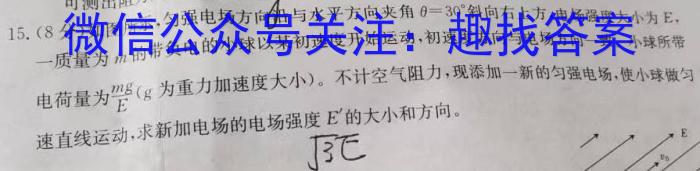 可测出阻
15.(8分)匀强电场方向与水平方向夹角θ=30°斜向右上方,电场强度大小为E,
微信公众号关注:趣找答案
一质量为m的带负电的小球以某初速度开始运动,初速度方向与电场方向一致,小球所带
电荷量为mg/E(g为重力加速度大小)。不计空气阻力,现添加一新的匀强电场,使小球做匀
速直线运动,求新加电场的电场强度E′的大小和方向。
√3E
E
v₀